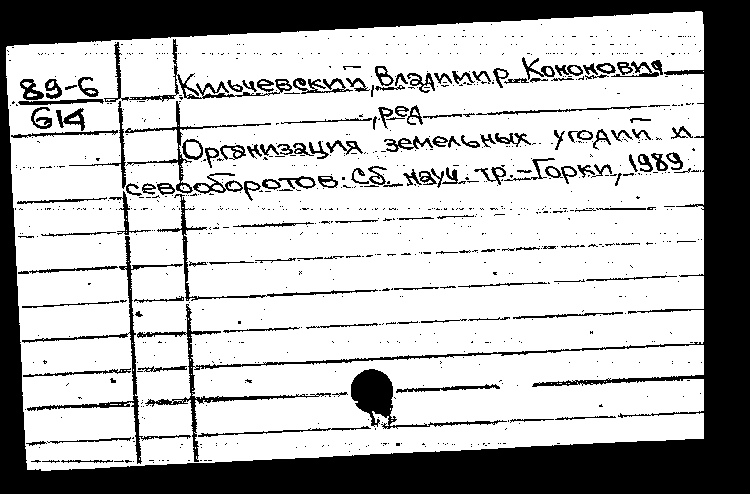 89-6
614
Кильчевский, Владимир Кононович
, ред
Организация земельных угодий и
севооборотов: Сб. науч. тр. - Горки, 1989.